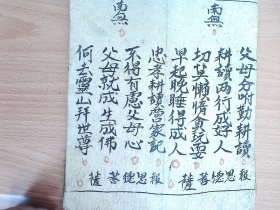 南無
父母分咐勤耕讀
耕讀兩行成好人
切莫懶惰貪玩耍
早起晚睡得成人
報恩德菩薩
南無
忠孝耕讀當家記
不得有慮父母心
父母就成生成佛
何去靈山拜世尊
報恩德菩薩